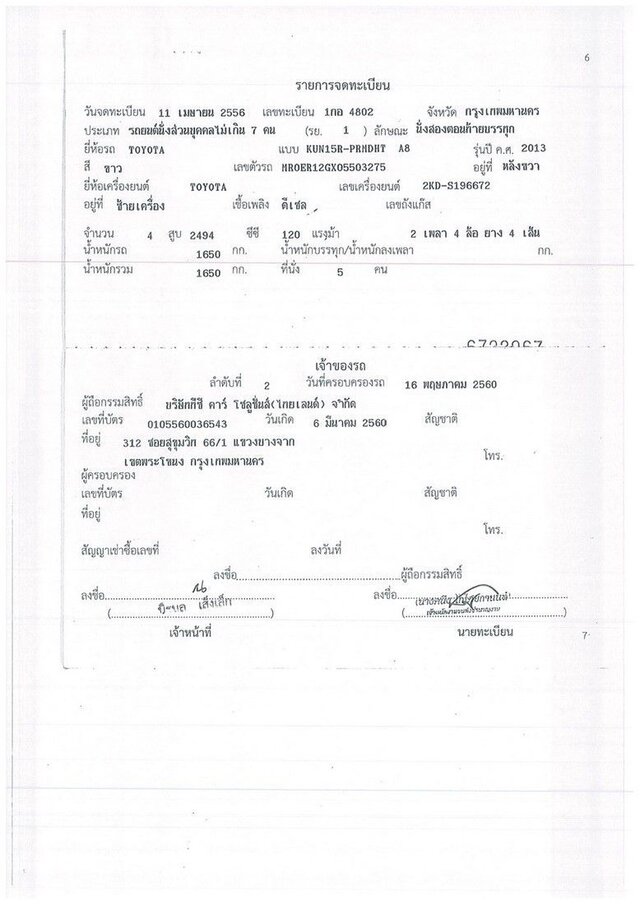 6
รายการจดทะเบียน
วันจดทะเบียน 11 เมษายน 2556 เลขทะเบียน 1กอ 4802 จังหวัด กรุงเทพมหานคร
ประเภท รถยนต์นั่งส่วนบุคคลไม่เกิน 7 คน (รย. 1 ) ลักษณะ นั่งสองตอนท้ายบรรทุก
ยี่ห้อรถ TOYOTA แบบ KUN15R-PRMDHT A8 รุ่นปี ค.ศ. 2013
สี ขาว เลขตัวรถ MROER12GX05503275 อยู่ที่ หลังขวา
ยี่ห้อเครื่องยนต์ TOYOTA เลขเครื่องยนต์ 2KD-S196672
อยู่ที่ ซ้ายเครื่อง เชื้อเพลิง ดีเซล เลขถังแก๊ส
จำนวน 4 สูบ 2494 ซีซี 120 แรงม้า 2 เพลา 4 ล้อ ยาง 4 เส้น
น้ำหนักรถ 1650 กก. น้ำหนักบรรทุก/น้ำหนักลงเพลา กก.
น้ำหนักรวม 1650 กก. ที่นั่ง 5 คน
6722067
เจ้าของรถ
ลำดับที่ 2 วันที่ครอบครองรถ 16 พฤษภาคม 2560
ผู้ถือกรรมสิทธิ์ บริษัทกีซี คาร์ โซลูชั่นส์(ไทยเลนด์) จำกัด
เลขที่บัตร 0105560036543 วันเกิด 6 มีนาคม 2560 สัญชาติ
ที่อยู่ 312 ซอยสุขุมวิท 66/1 แขวงบางจาก
เขตพระโขนง กรุงเทพมหานคร โทร.
ผู้ครอบครอง
เลขที่บัตร วันเกิด สัญชาติ
ที่อยู่
โทร.
สัญญาเช่าซื้อเลขที่ ลงวันที่
ลงชื่อ ผู้ถือกรรมสิทธิ์
ลงชื่อ ลงชื่อ
เจ้าหน้าที่ นายทะเบียน
7